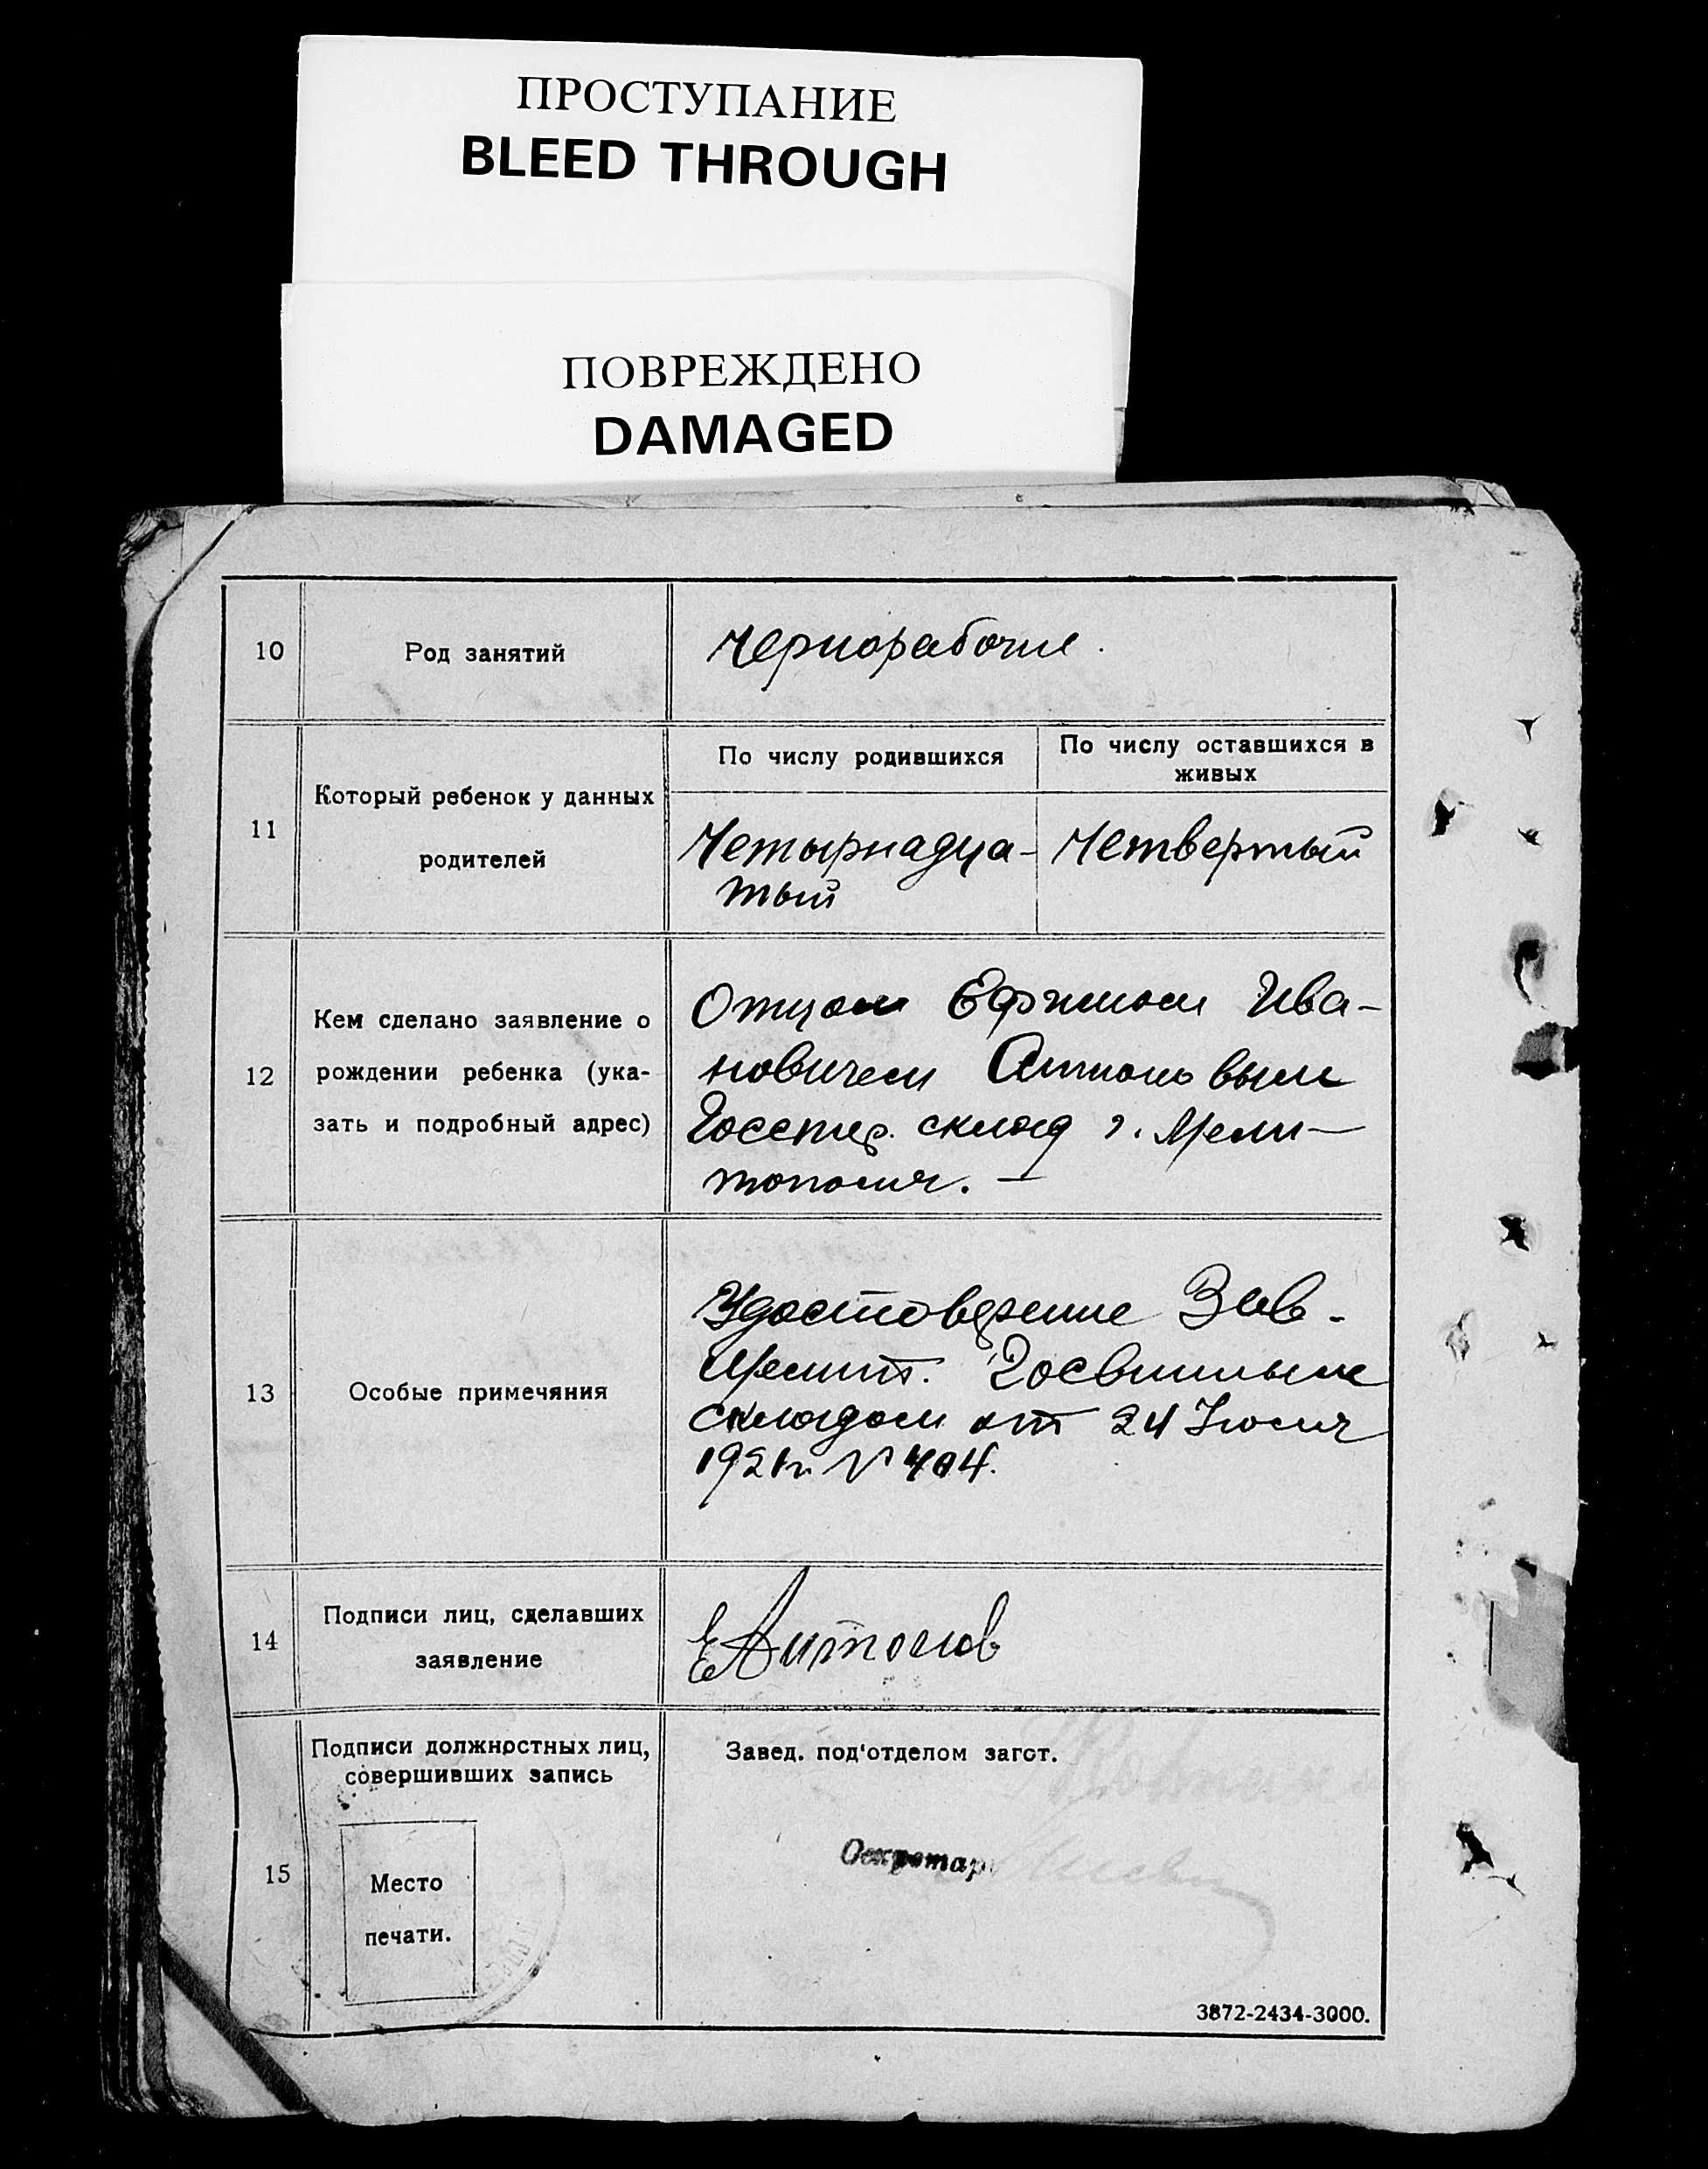 ПРОСТУПАНИЕ
BLEED THROUGH
ПОВРЕЖДЕНО
DAMAGED
10
Род занятий
Чернорабочие.
11
Который ребенок у данных
родителей
По числу родившихся
По числу оставшихся в
живых
Четырнадца-
тый
Четвертый
12
Кем сделано заявление о
рождении ребенка (ука-
зать и подробный адрес)
Отцом Ефимом Ива-
новичем Антоновым
склад г. Мели-
тополя. —
13
Особые примечяния
Удостоверение Зав.
Мелит. Госвинным
складом от 24 Июля
1921г. № 404.
14
Подписи лиц, сделавших
заявление
ЕАнтонов
15
Подписи должностных лиц,
совершивших запись
Место
печати.
Завед. под'отделом загст.
Секретар
3872-2434-3000.